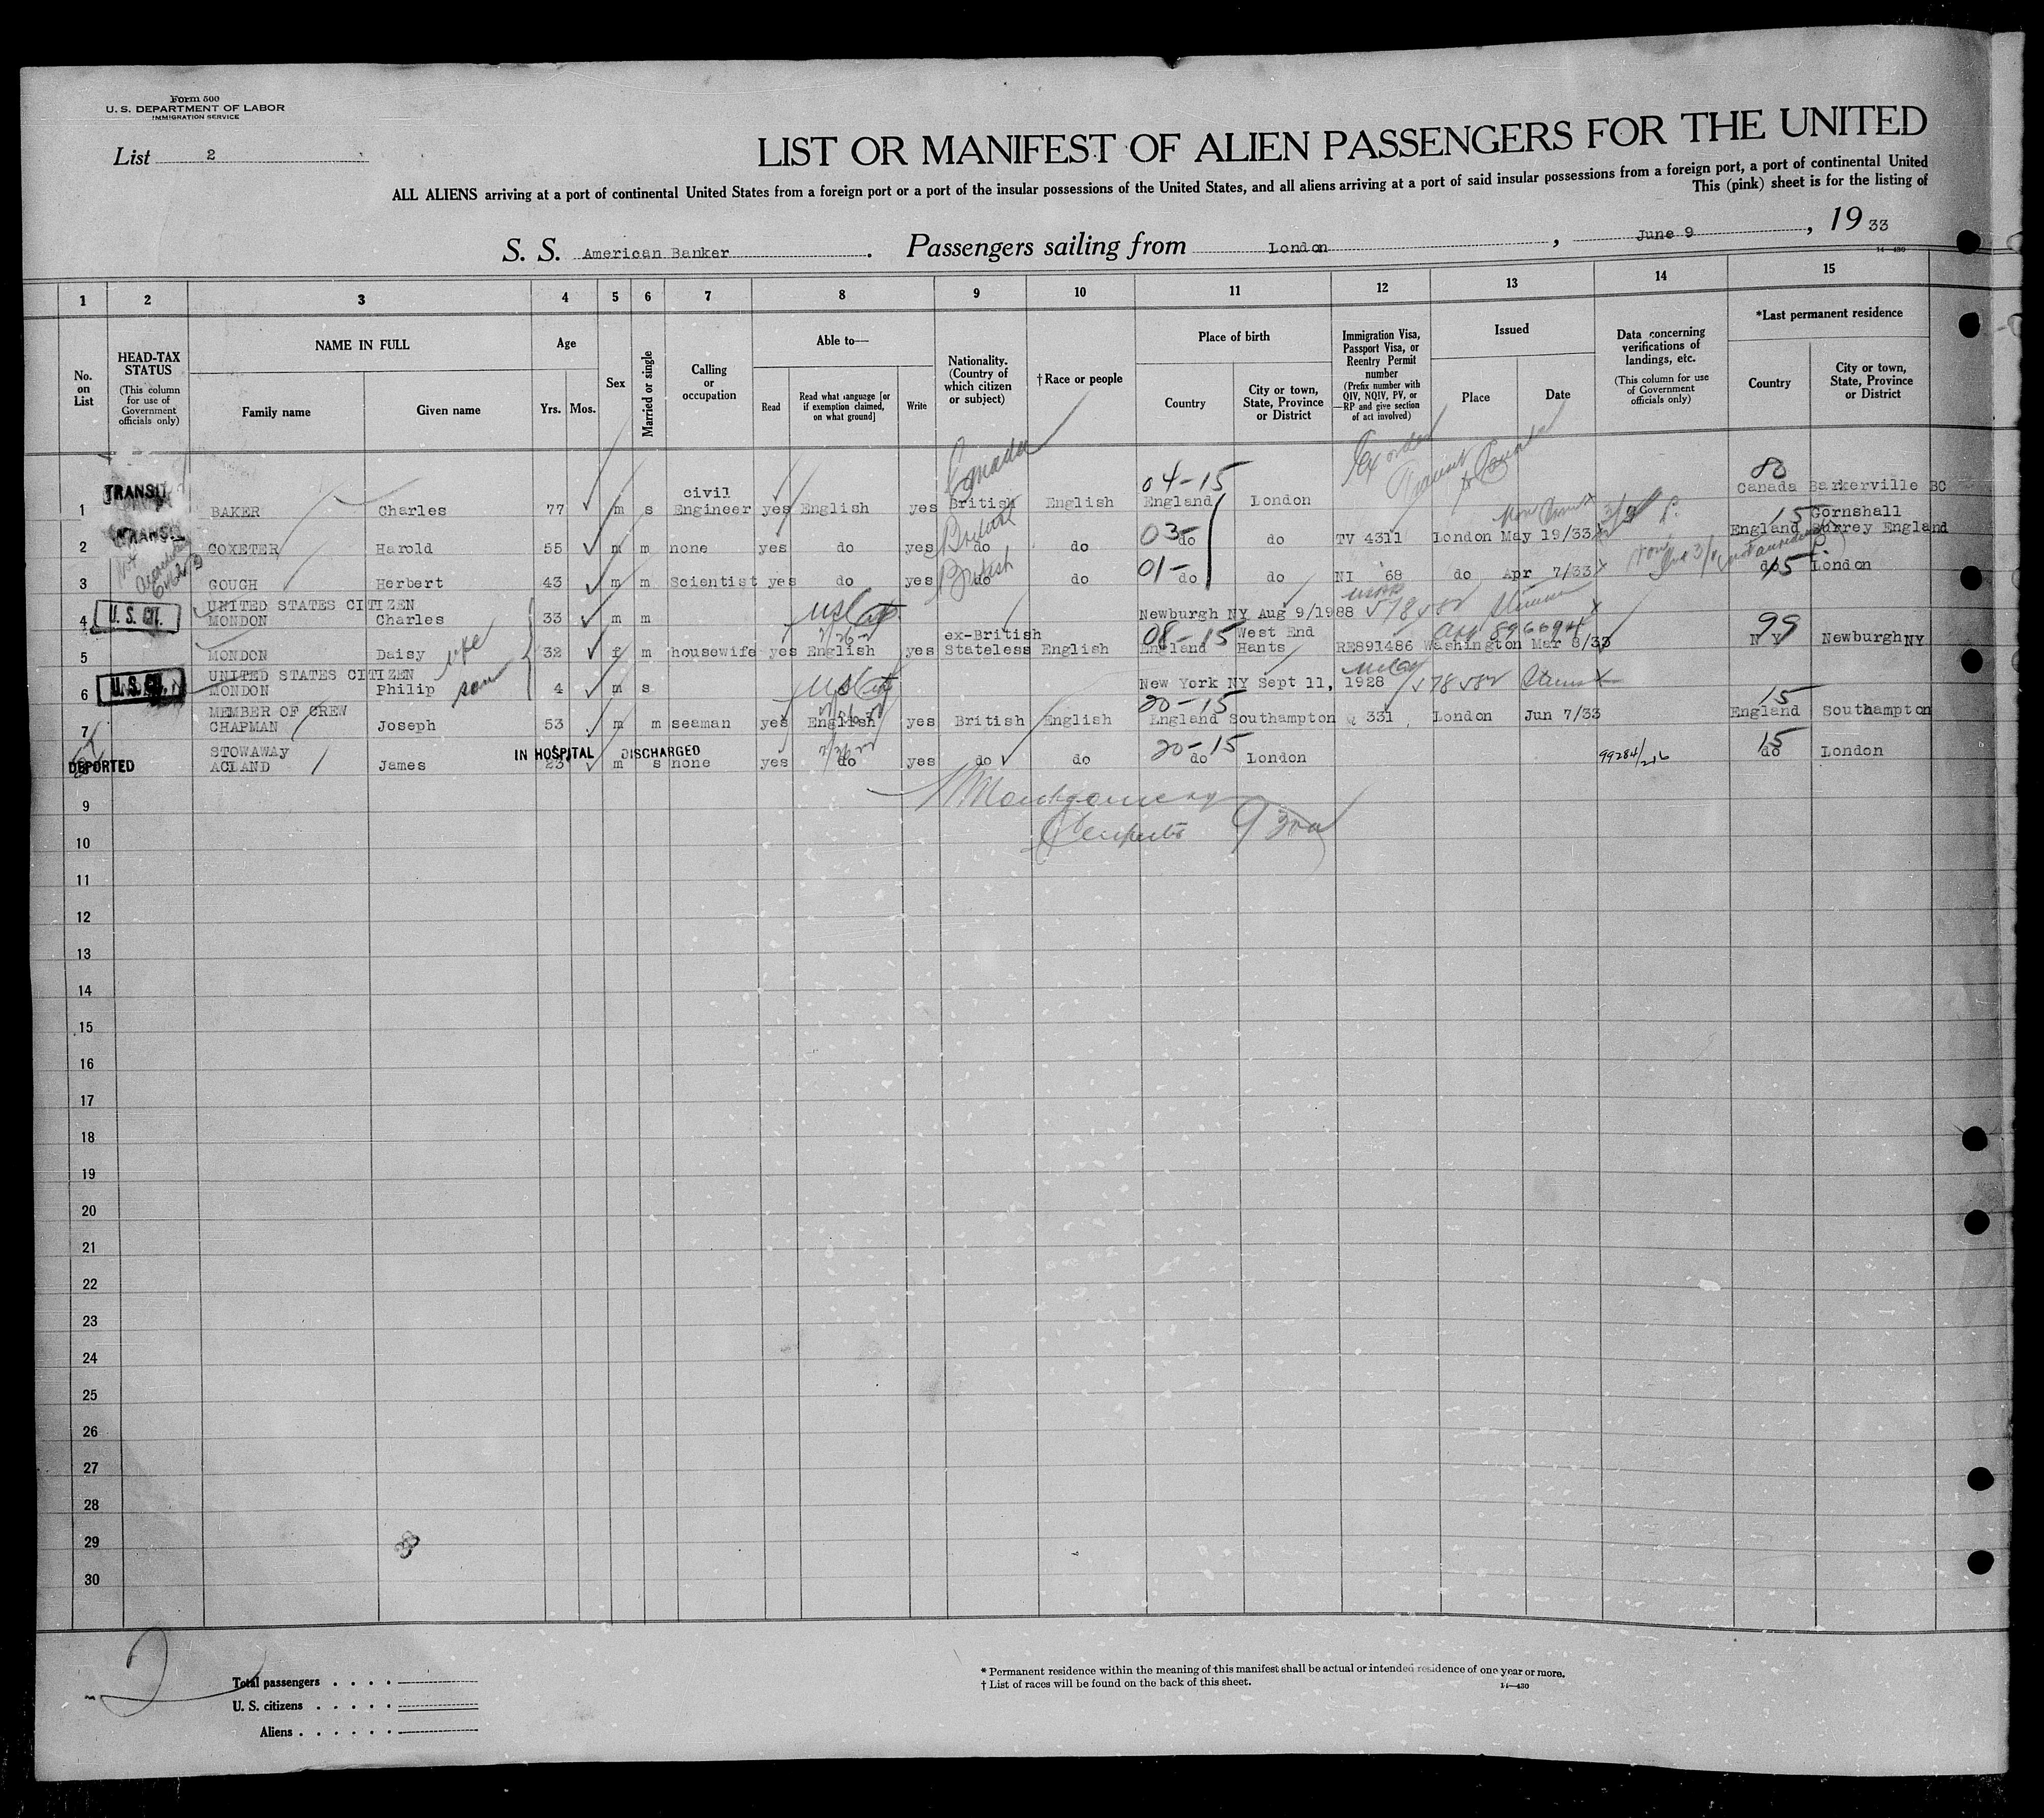 Form 500
U. S. DEPARTMENT OF LABOR
IMMIGRATION SERVICE
List 2
LIST OR MANIFEST OF ALIEN PASSENGERS FOR THE UNITED
ALL ALIENS arriving at a port of continental United States from a foreign port or a port of the insular possessions of the United States, and all aliens arriving at a port of said insular possessions from a foreign port, a port of continental United
This (pink) sheet is for the listing of
S. S. American Banker. Passengers sailing from London, June 9, 19 33
14—430
1 2 3 4 5 6 7 8 9 10 11 12 13 14 15
No. on List
HEAD-TAX STATUS (This column for use of Government officials only)
NAME IN FULL Family name Given name
Age Yrs. Mos.
Sex
Married or single
Calling or occupation
Able to— Read Read what language [or if exemption claimed, on what ground] Write
Nationality. (Country of which citizen or subject)
†Race or people
Place of birth Country City or town, State, Province or District
Immigration Visa, Passport Visa, or Reentry Permit number (Prefix number with QIV, NQIV, PV, or —RP and give section of act involved)
Issued Place Date
Data concerning verifications of landings, etc. (This column for use of Government officials only)
*Last permanent residence Country City or town, State, Province or District
Canada Ex order Transit to Canada
04-15 80
1 TRANSIT BAKER Charles 77 m s civil Engineer yes English yes British English England London Canada Barkerville BC
British 03- 15
2 TRANSIT COXETER Harold 55 m m none yes do yes do do do do TV 4311 London May 19/33 England Cornshall Surrey England
British 01- 15
3 GOUGH Herbert 43 m m Scientist yes do yes do do do do NI 68 do Apr 7/33 do London
UNITED STATES CITIZEN
4 U. S. CIT. MONDON Charles 33 m m US Cit Newburgh NY Aug 9/1988
08-15 99
5 MONDON Daisy wife 32 f m housewife yes English yes ex-British Stateless English England West End Hants RE891486 Washington Mar 8/33 N Y Newburgh NY
UNITED STATES CITIZEN
6 U. S. CIT. MONDON Philip son 4 m s US Cit New York NY Sept 11, 1928
MEMBER OF CREW 20-15 15
7 CHAPMAN Joseph 53 m m seaman yes English yes British English England Southampton 331 London Jun 7/33 England Southampton
STOWAWAY IN HOSPITAL DISCHARGED 20-15 15
DEPORTED ACLAND James 23 m s none yes do yes do do do London 99284/216 do London
9 Montgomery
10
11
12
13
14
15
16
17
18
19
20
21
22
23
24
25
26
27
28
29
30
2
Total passengers
U. S. citizens
Aliens
* Permanent residence within the meaning of this manifest shall be actual or intended residence of one year or more.
† List of races will be found on the back of this sheet.
14—430